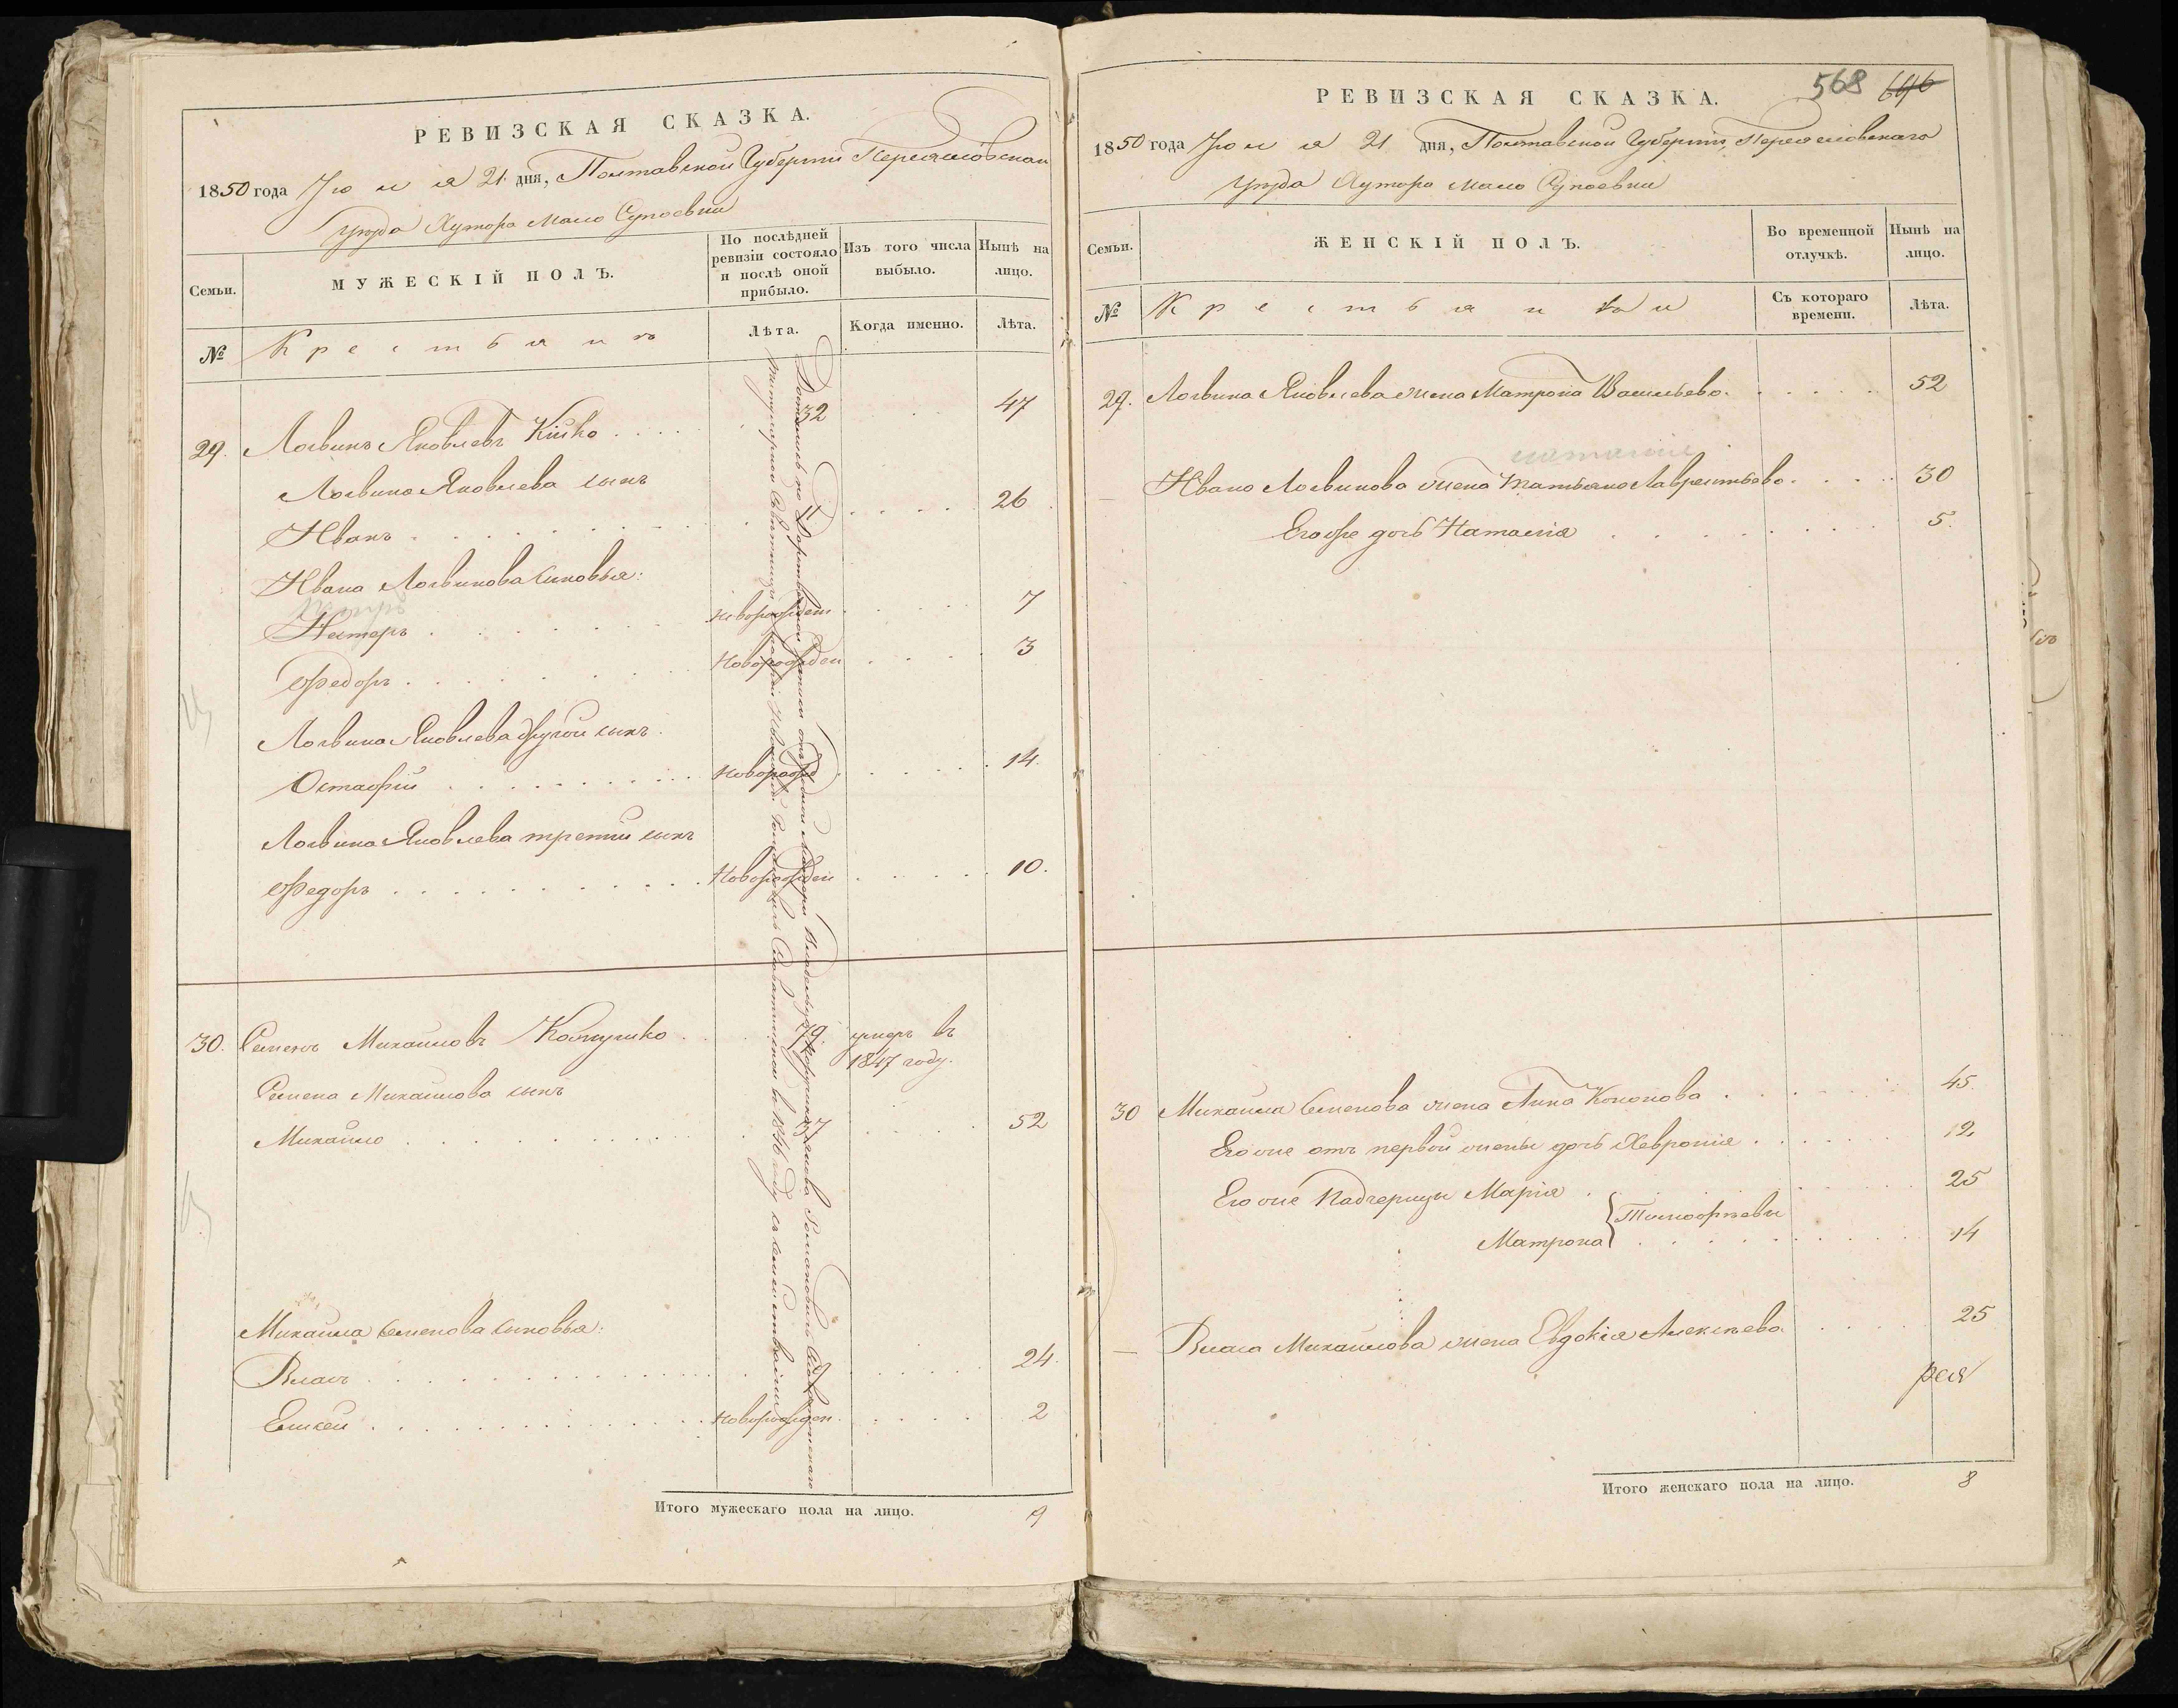 РЕВИЗСКАЯ СКАЗКА.
1850 года Июля 21 дня, Полтавской Губернии Переяславскаго
уезда Хутора Мало Супоевки
Семьи.
МУЖЕСКІЙ ПОЛЪ.
По послѣдней ревизіи состояло и послѣ оной прибыло.
Изъ того числа выбыло.
Нынѣ на лицо.
№
Крестьянъ
Лѣта.
Когда именно.
Лѣта.
29. Логвинъ Яковлевъ Кійко 32 47
Логвина Яковлева сынъ
Иванъ 11 26
Ивана Логвинова сыновья:
Петръ
Нестеръ новорожден 7
Федоръ Новорожден 3
Логвина Яковлева другой сынъ
Остафій новорожд 14.
Логвина Яковлева третий сынъ
Федоръ Новорожден 10.
30. Семенъ Михайловъ 79 умеръ въ
1847 году.
Семена Михайлова сынъ
Михайло 37 52
Михайла Семенова сыновья:
Власъ 24.
Елисей новорожден. 2
Итого мужескаго пола на лицо. 9
568 646
РЕВИЗСКАЯ СКАЗКА.
1850 года Июля 21 дня, Полтавской Губерніи, Переяславскаго
уезда Хутора Мало Супоевки
Семьи.
ЖЕНСКІЙ ПОЛЪ.
Во временной отлучкѣ.
Нынѣ на лицо.
№
Крестьянки
Съ котораго времени.
Лѣта.
29. Логвина Яковлева жена Матрона Васильева 52
Ивана Логвинова жена Татьяна Лаврентьева 30
Его же дочь Наталія 5.
30 Михайла Семенова жена Анна Кононова 45.
Его же отъ первой жены дочь Хевронія 12
Его же Падчерицы Марія 25
Тимофеевы
Матрона 14
Власа Михайлова жена Евдокія Алексѣева 25
Итого женскаго пола на лицо. 8